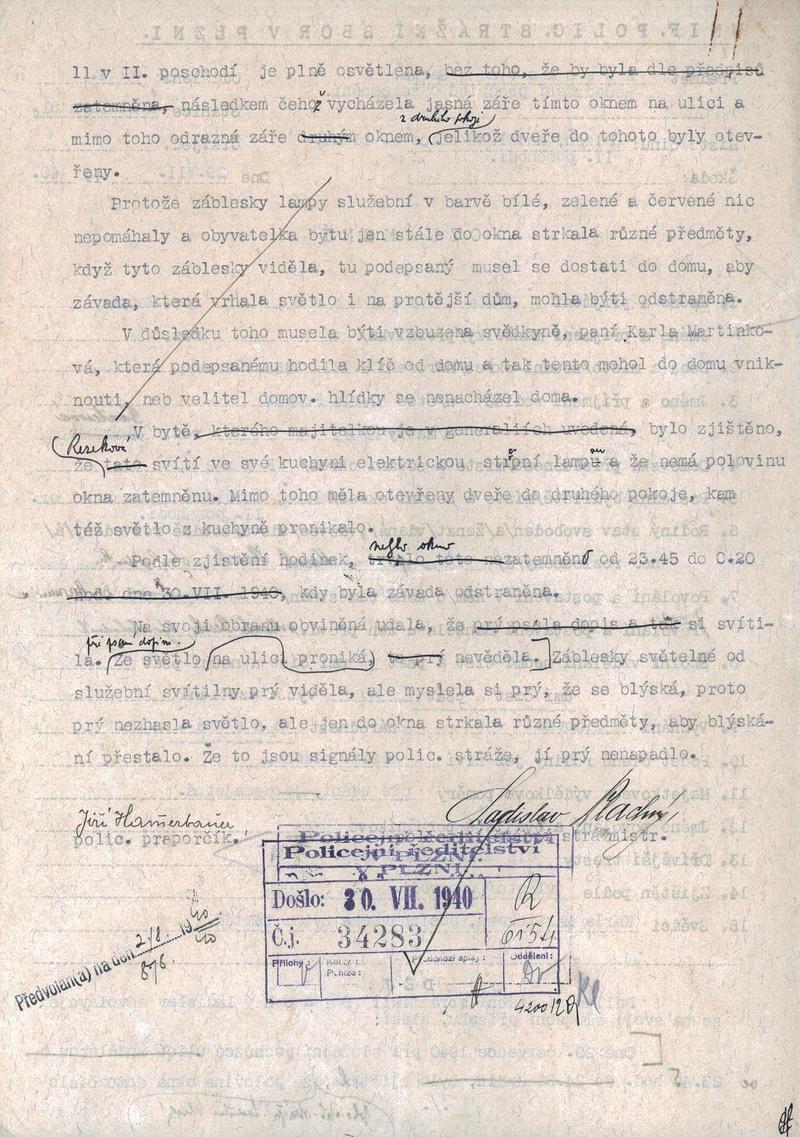 11 v II. poschodí je plně osvětlena, bez toho, že by byla dle předpisů
zatemněna, následkem čehož vycházela jasná záře tímto oknem na ulici a
z druhého pokoje
mimo toho odrazná záře druhým oknem, jelikož dveře do tohoto byly otev-
řeny.
Protože záblesky lampy služební v barvě bílé, zelené a červené nic
nepomáhaly a obyvatelka bytu jen stále do okna strkala různé předměty,
když tyto záblesky viděla, tu podepsaný musel se dostati do domu, aby
závada, která vrhala světlo i na protější dům, mohla býti odstraněna.
V důsledku toho musela býti vzbuzena svědkyně, paní Karla Martinko-
vá, která podepsanému hodila klíč od domu a tak tento mohol do domu vnik-
nouti, neb velitel domov. hlídky se nenacházel doma.
V bytě, kterého majitelkou je v generaliích uvedená, bylo zjištěno,
že tato svítí ve své kuchyni elektrickou stropní lampou a že nemá polovinu
okna zatemněnu. Mimo toho měla otevřeny dveře do druhého pokoje, kam
též světlo z kuchyně pronikalo.
nebylo okno
Podle zjistění hodinek, trvalo toto nezatemněno od 23.45 do 0.20
hod. dne 30.VII. 1940, kdy byla závada odstraněna.
Na svoji obranu obviněná udala, že prý psala dopis a tak si svíti-
při psaní dopisu.
la. Že světlo na ulici proniká, to prý nevěděla. Záblesky světelné od
služební svítilny prý viděla, ale myslela si prý, že se blýská, proto
prý nezhasla světlo, ale jen do okna strkala různé předměty, aby blýská-
ní přestalo. Že to jsou signály polic. stráže, jí prý nenapadlo.
Ladislav
strážmistr.
Jiří Hamerbauer
polic. praporčík.
Policejní ředitelství
V PLZNI.
Došlo: 30. VII. 1940
R
Č.j. 34283
6154
Přílohy:
Kolky:
Peníze:
Předchozí spisy:
Oddělení:
Předvolán(a) na den 2/8. 1940